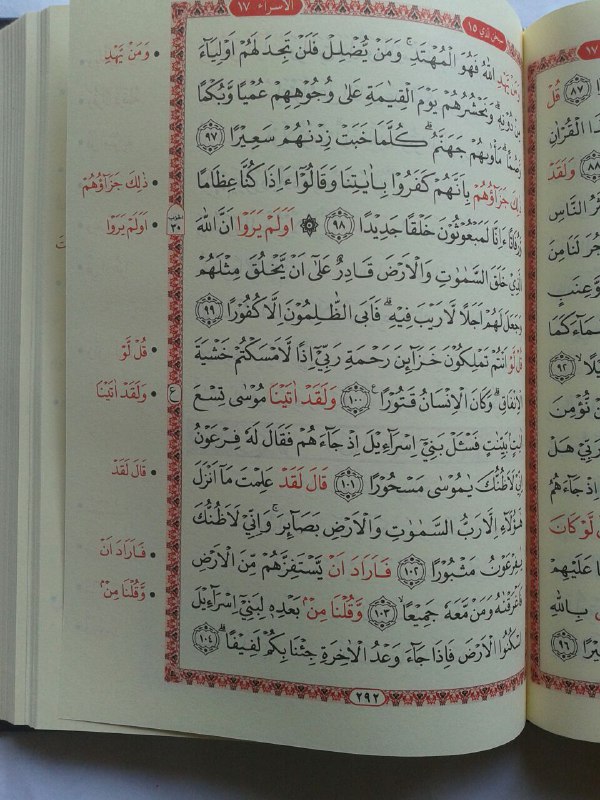 الاسراء ١٧
سبحن الذي ١٥
وَمَنْ يَّهْدِ اللّٰهُ فَهُوَ الْمُهْتَدِۚ وَمَنْ يُّضْلِلْ فَلَنْ تَجِدَ لَهُمْ اَوْلِيَاۤءَ
مِنْ دُوْنِهٖۗ وَنَحْشُرُهُمْ يَوْمَ الْقِيٰمَةِ عَلٰى وُجُوْهِهِمْ عُمْيًا وَّبُكْمًا
وَّصُمًّاۗ مَأْوٰىهُمْ جَهَنَّمُۗ كُلَّمَا خَبَتْ زِدْنٰهُمْ سَعِيْرًا ٩٧
ذٰلِكَ جَزَاۤؤُهُمْ بِاَنَّهُمْ كَفَرُوْا بِاٰيٰتِنَا وَقَالُوْٓا ءَاِذَا كُنَّا عِظَامًا
وَّرُفَاتًا ءَاِنَّا لَمَبْعُوْثُوْنَ خَلْقًا جَدِيْدًا ٩٨ ۞ اَوَلَمْ يَرَوْا اَنَّ اللّٰهَ
الَّذِيْ خَلَقَ السَّمٰوٰتِ وَالْاَرْضَ قَادِرٌ عَلٰٓى اَنْ يَّخْلُقَ مِثْلَهُمْ
وَجَعَلَ لَهُمْ اَجَلًا لَّا رَيْبَ فِيْهِۗ فَاَبَى الظّٰلِمُوْنَ اِلَّا كُفُوْرًا ٩٩
قُلْ لَّوْ اَنْتُمْ تَمْلِكُوْنَ خَزَاۤئِنَ رَحْمَةِ رَبِّيْٓ اِذًا لَّاَمْسَكْتُمْ خَشْيَةَ
الْاِنْفَاقِۗ وَكَانَ الْاِنْسَانُ قَتُوْرًاࣖ ١٠٠ وَلَقَدْ اٰتَيْنَا مُوْسٰى تِسْعَ
اٰيٰتٍۢ بَيِّنٰتٍ فَسْـَٔلْ بَنِيْٓ اِسْرَاۤءِيْلَ اِذْ جَاۤءَهُمْ فَقَالَ لَهٗ فِرْعَوْنُ
اِنِّيْ لَاَظُنُّكَ يٰمُوْسٰى مَسْحُوْرًا ١٠١ قَالَ لَقَدْ عَلِمْتَ مَآ اَنْزَلَ
هٰٓؤُلَاۤءِ اِلَّا رَبُّ السَّمٰوٰتِ وَالْاَرْضِ بَصَاۤئِرَۚ وَاِنِّيْ لَاَظُنُّكَ
يٰفِرْعَوْنُ مَثْبُوْرًا ١٠٢ فَاَرَادَ اَنْ يَّسْتَفِزَّهُمْ مِّنَ الْاَرْضِ
فَاَغْرَقْنٰهُ وَمَنْ مَّعَهٗ جَمِيْعًاۙ ١٠٣ وَّقُلْنَا مِنْۢ بَعْدِهٖ لِبَنِيْٓ اِسْرَاۤءِيْلَ
اسْكُنُوا الْاَرْضَ فَاِذَا جَاۤءَ وَعْدُ الْاٰخِرَةِ جِئْنَا بِكُمْ لَفِيْفًاۗ ١٠٤
٢٩٢
وَمَنْ يَّهْدِ
ذٰلِكَ جَزَاۤؤُهُمْ
اَوَلَمْ يَرَوْا
قُلْ لَّوْ
وَلَقَدْ اٰتَيْنَا
قَالَ لَقَدْ
فَاَرَادَ اَنْ
وَّقُلْنَا مِنْۢ
٣٠
ع
١٧
٨٧ قُلْ
الْقُرْاٰنِ
٨٨ وَلَقَدْ
النَّاسِ
لَنَا مِنَ
وَّعِنَبٍ
٩٣
نُّؤْمِنَ
رَبِّيْ هَلْ
اِذْ جَاۤءَهُمُ
لَّوْ كَانَ
عَلَيْهِمْ
بِاللّٰهِ
٩٦